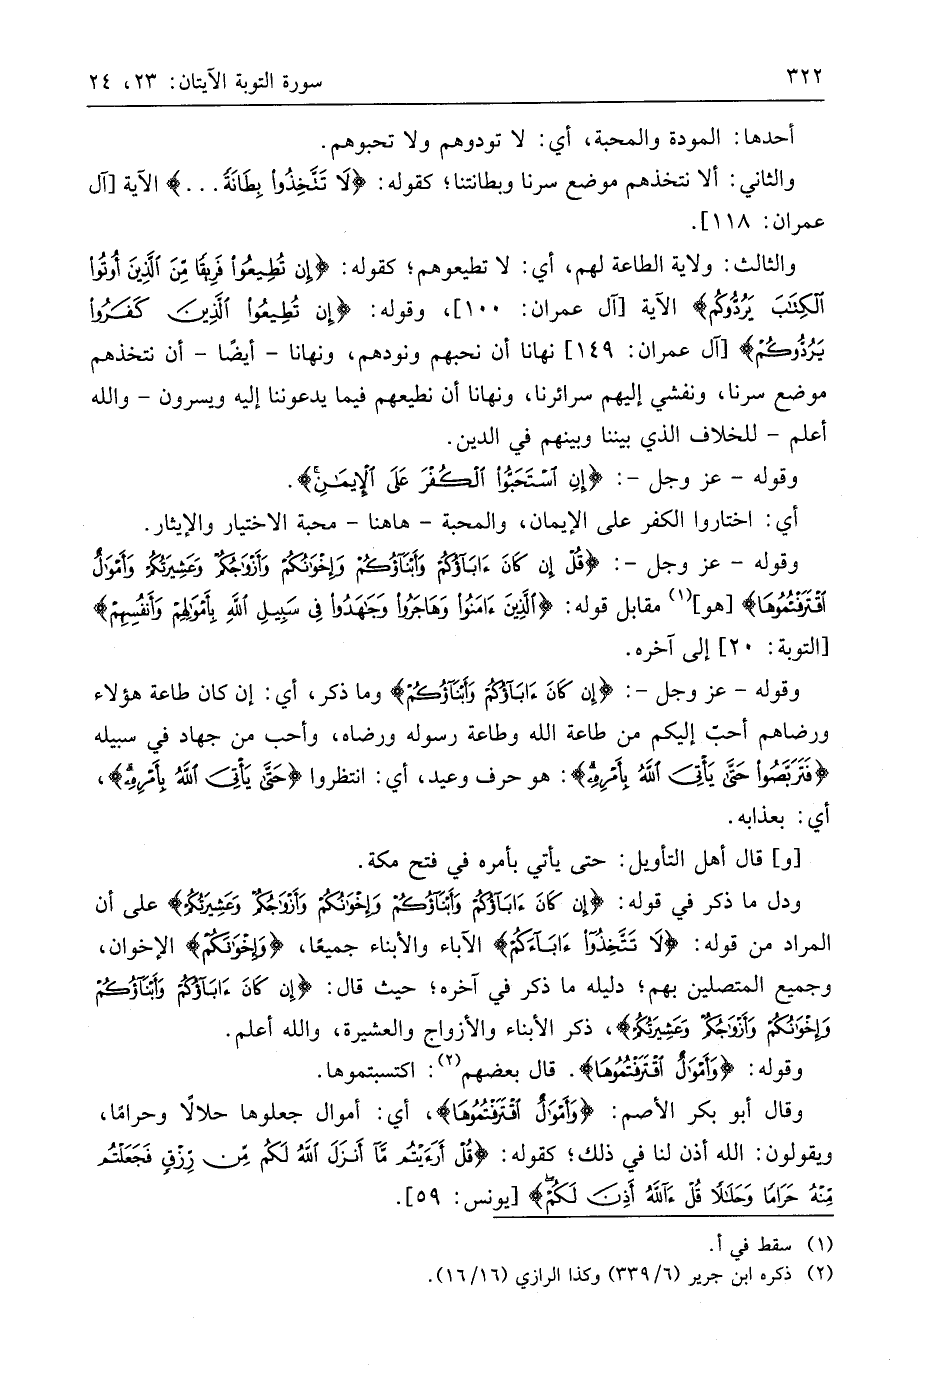 ٣٢٢
سورة التوبة الآيتان: ٢٣، ٢٤
أحدها: المودة والمحبة، أي: لا تودوهم ولا تحبوهم.
والثاني: ألا نتخذهم موضع سرنا وبطانتنا؛ كقوله: ﴿لَا تَتَّخِذُوا۟ بِطَانَةً...﴾ الآية [آل
عمران: ١١٨].
والثالث: ولاية الطاعة لهم، أي: لا تطيعوهم؛ كقوله: ﴿إِن تُطِيعُوا۟ فَرِيقًا مِّنَ ٱلَّذِينَ أُوتُوا۟
ٱلْكِتَـٰبَ يَرُدُّوكُم﴾ الآية [آل عمران: ١٠٠]، وقوله: ﴿إِن تُطِيعُوا۟ ٱلَّذِينَ كَفَرُوا۟
يَرُدُّوكُمْ﴾ [آل عمران: ١٤٩] نهانا أن نحبهم ونودهم، ونهانا - أيضًا - أن نتخذهم
موضع سرنا، ونفشي إليهم سرائرنا، ونهانا أن نطيعهم فيما يدعوننا إليه ويسرون - والله
أعلم - للخلاف الذي بيننا وبينهم في الدين.
وقوله - عز وجل -: ﴿إِنِ ٱسْتَحَبُّوا۟ ٱلْكُفْرَ عَلَى ٱلْإِيمَـٰنِۚ﴾.
أي: اختاروا الكفر على الإيمان، والمحبة - هاهنا - محبة الاختيار والإيثار.
وقوله - عز وجل -: ﴿قُلْ إِن كَانَ ءَابَآؤُكُمْ وَأَبْنَآؤُكُمْ وَإِخْوَٰنُكُمْ وَأَزْوَٰجُكُمْ وَعَشِيرَتُكُمْ وَأَمْوَٰلٌ
ٱقْتَرَفْتُمُوهَا﴾ [هو](١) مقابل قوله: ﴿ٱلَّذِينَ ءَامَنُوا۟ وَهَاجَرُوا۟ وَجَـٰهَدُوا۟ فِى سَبِيلِ ٱللَّهِ بِأَمْوَٰلِهِمْ وَأَنفُسِهِمْ﴾
[التوبة: ٢٠] إلى آخره.
وقوله - عز وجل -: ﴿إِن كَانَ ءَابَآؤُكُمْ وَأَبْنَآؤُكُمْ﴾ وما ذكر، أي: إن كان طاعة هؤلاء
ورضاهم أحبّ إليكم من طاعة الله وطاعة رسوله ورضاه، وأحب من جهاد في سبيله
﴿فَتَرَبَّصُوا۟ حَتَّىٰ يَأْتِىَ ٱللَّهُ بِأَمْرِهِۦ﴾: هو حرف وعيد، أي: انتظروا ﴿حَتَّىٰ يَأْتِىَ ٱللَّهُ بِأَمْرِهِۦ﴾،
أي: بعذابه.
[و] قال أهل التأويل: حتى يأتي بأمره في فتح مكة.
ودل ما ذكر في قوله: ﴿إِن كَانَ ءَابَآؤُكُمْ وَأَبْنَآؤُكُمْ وَإِخْوَٰنُكُمْ وَأَزْوَٰجُكُمْ وَعَشِيرَتُكُمْ﴾ على أن
المراد من قوله: ﴿لَا تَتَّخِذُوٓا۟ ءَابَآءَكُمْ﴾ الآباء والأبناء جميعًا، ﴿وَإِخْوَٰنَكُمْ﴾ الإخوان،
وجميع المتصلين بهم؛ دليله ما ذكر في آخره؛ حيث قال: ﴿إِن كَانَ ءَابَآؤُكُمْ وَأَبْنَآؤُكُمْ
وَإِخْوَٰنُكُمْ وَأَزْوَٰجُكُمْ وَعَشِيرَتُكُمْ﴾، ذكر الأبناء والأزواج والعشيرة، والله أعلم.
وقوله: ﴿وَأَمْوَٰلٌ ٱقْتَرَفْتُمُوهَا﴾. قال بعضهم(٢): اكتسبتموها.
وقال أبو بكر الأصم: ﴿وَأَمْوَٰلٌ ٱقْتَرَفْتُمُوهَا﴾، أي: أموال جعلوها حلالًا وحرامًا،
ويقولون: الله أذن لنا في ذلك؛ كقوله: ﴿قُلْ أَرَءَيْتُم مَّآ أَنزَلَ ٱللَّهُ لَكُم مِّن رِّزْقٍ فَجَعَلْتُم
مِّنْهُ حَرَامًا وَحَلَـٰلًا قُلْ ءَآللَّهُ أَذِنَ لَكُمْۖ﴾ [يونس: ٥٩].
(١) سقط في أ.
(٢) ذكره ابن جرير (٣٣٩/٦) وكذا الرازي (١٦/١٦).